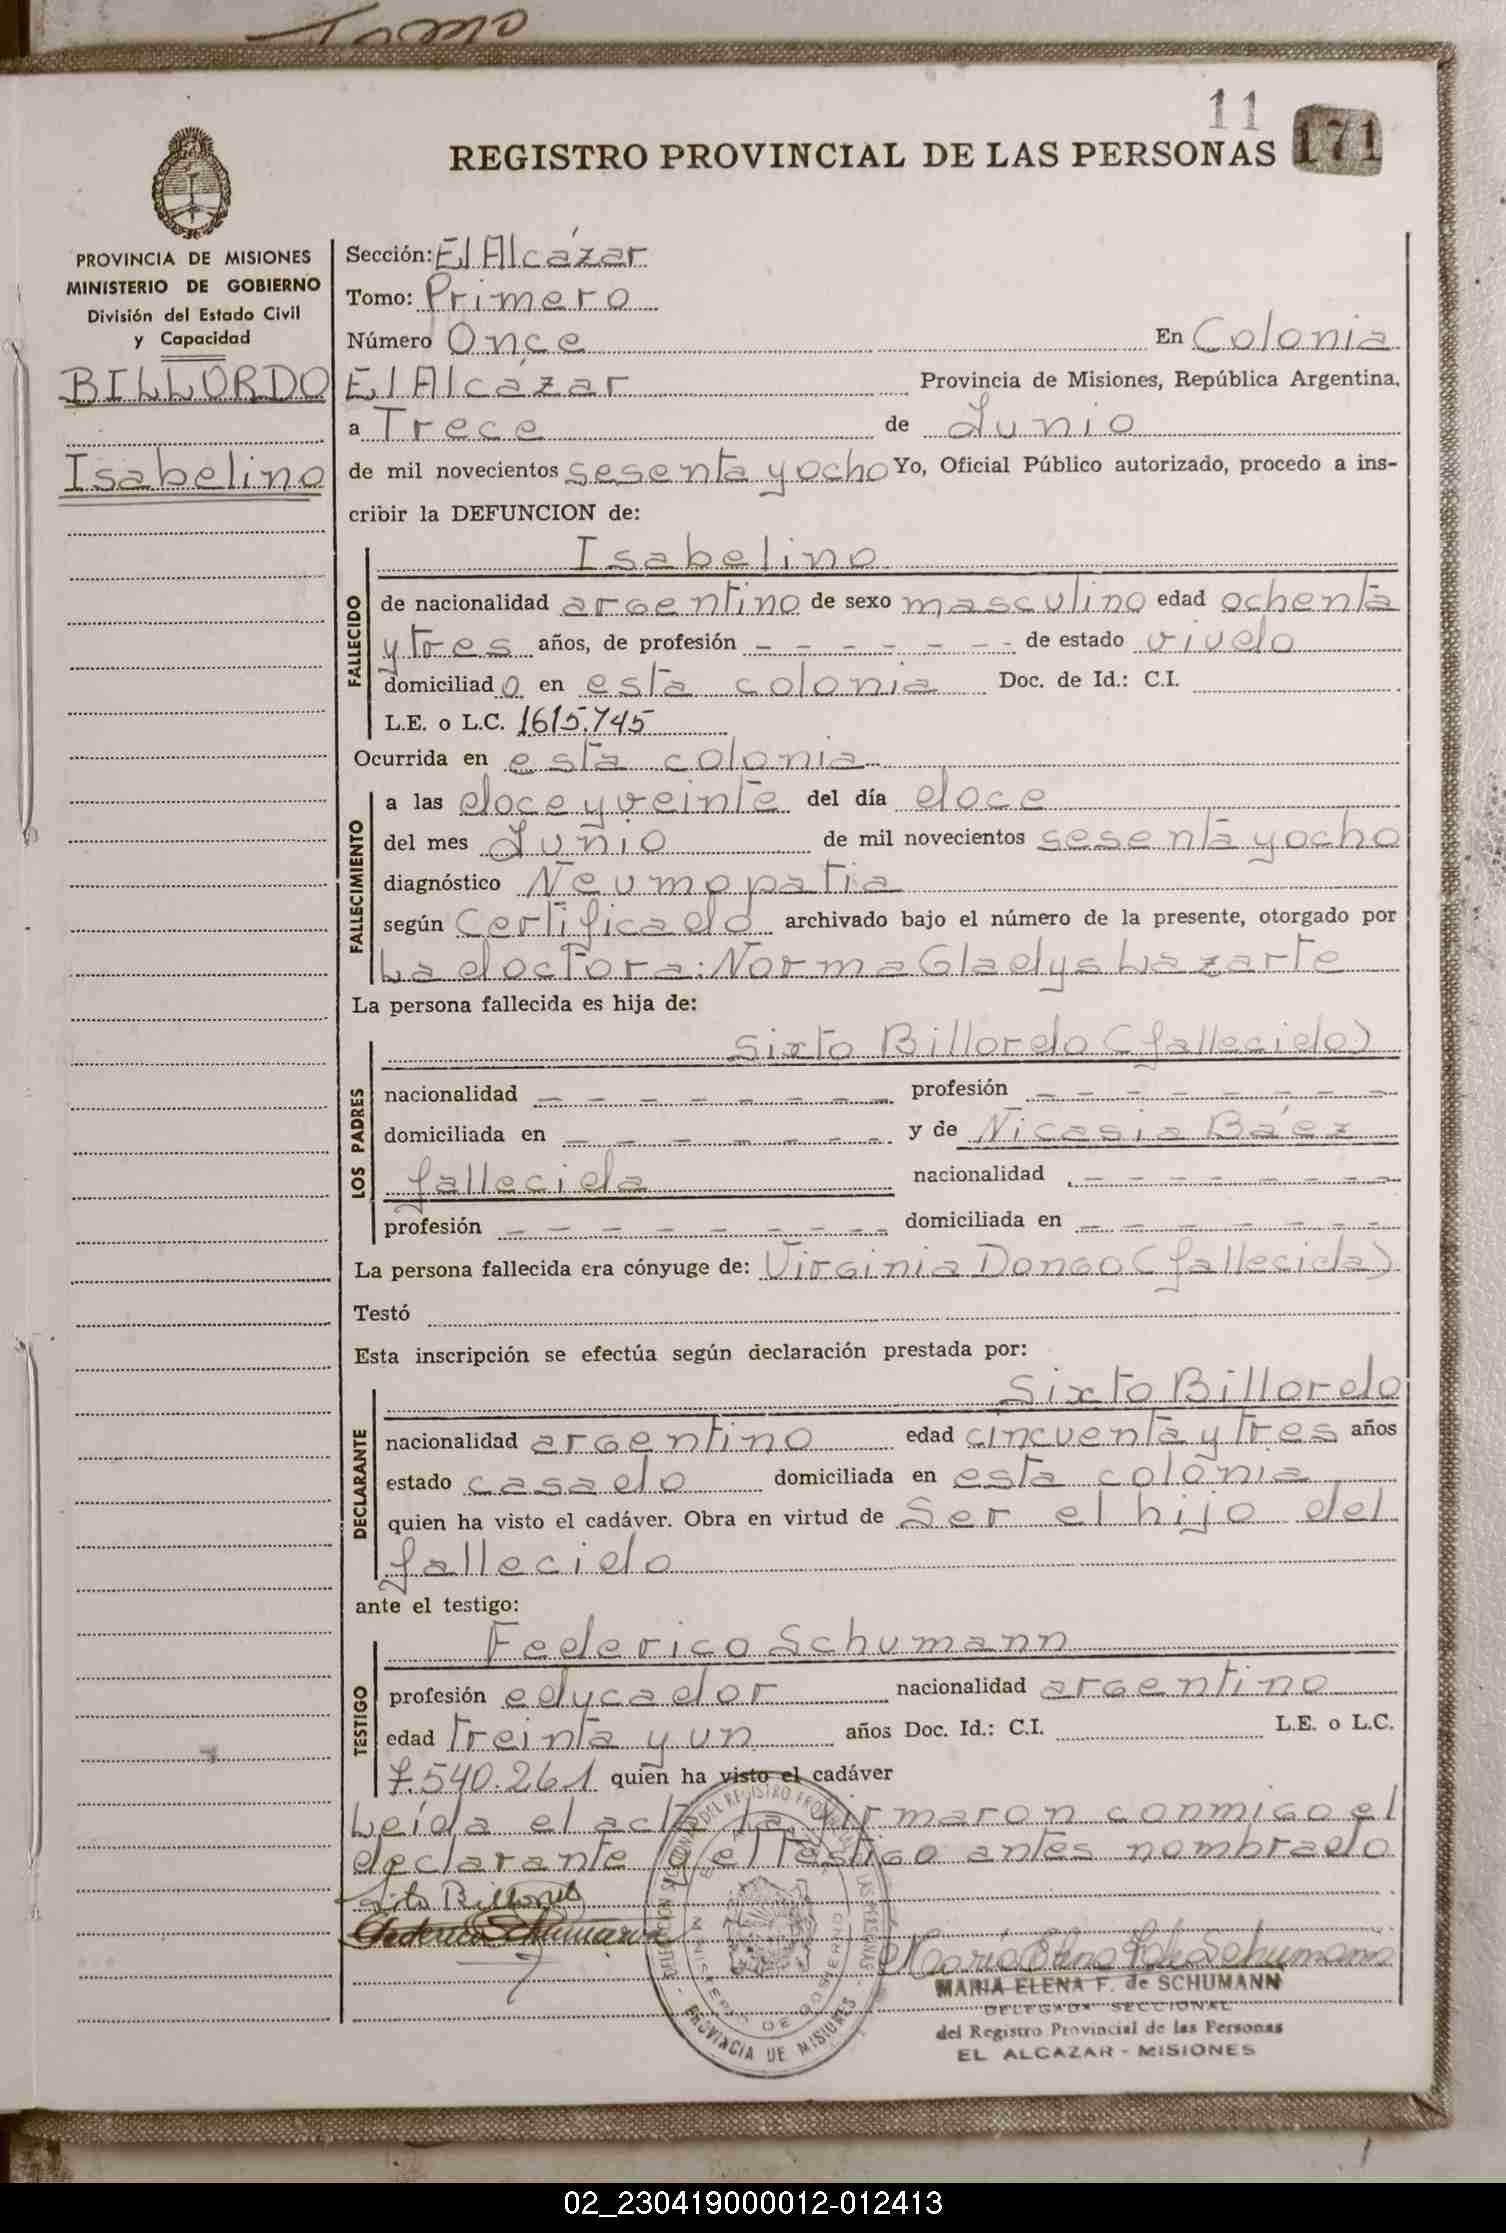 Tomo
11
171
REGISTRO PROVINCIAL DE LAS PERSONAS
PROVINCIA DE MISIONES
MINISTERIO DE GOBIERNO
División del Estado Civil
y Capacidad
BILLORDO
Isabelino
Sección: El Alcázar
Tomo: Primero
Número Once En Colonia
El Alcázar Provincia de Misiones, República Argentina,
a Trece de Junio
de mil novecientos sesenta y ocho Yo, Oficial Público autorizado, procedo a ins-
cribir la DEFUNCION de:
Isabelino
FALLECIDO
de nacionalidad argentino de sexo masculino edad ochenta
y tres años, de profesión - - - - - - - de estado viudo
domiciliado en esta colonia Doc. de Id.: C.I.
L.E. o L.C. 1615.745
Ocurrida en esta colonia
FALLECIMIENTO
a las doce y veinte del día doce
del mes Junio de mil novecientos sesenta y ocho
diagnóstico Neumopatia
según Certificado archivado bajo el número de la presente, otorgado por
La doctora: Norma Gladys Lazarte
La persona fallecida es hija de:
LOS PADRES
Sixto Billordo (fallecido)
nacionalidad - - - - - - - profesión - - - - - - - -
domiciliada en - - - - - - - y de Nicasia Báez
fallecida nacionalidad - - - - - - - -
profesión - - - - - - - - - domiciliada en - - - - - - -
La persona fallecida era cónyuge de: Virginia Dongo (fallecida)
Testó
Esta inscripción se efectúa según declaración prestada por:
DECLARANTE
Sixto Billordo
nacionalidad argentino edad cincuenta y tres años
estado casado domiciliada en esta colonia
quien ha visto el cadáver. Obra en virtud de Ser el hijo del
fallecido
ante el testigo:
TESTIGO
Federico Schumann
profesión educador nacionalidad argentino
edad treinta y un años Doc. Id.: C.I. L.E. o L.C.
7.540.261 quien ha visto el cadáver
Leída el acta la firmaron conmigo el
declarante y el testigo antes nombrado
Sito Billordo
Federico Schumann
MINISTERIO DE GOBIERNO
PROVINCIA DE MISIONES
Maria Elena F. de Schumann
MARIA ELENA F. de SCHUMANN
DELEGADA SECCIONAL
del Registro Provincial de las Personas
EL ALCAZAR - MISIONES
02_230419000012-012413